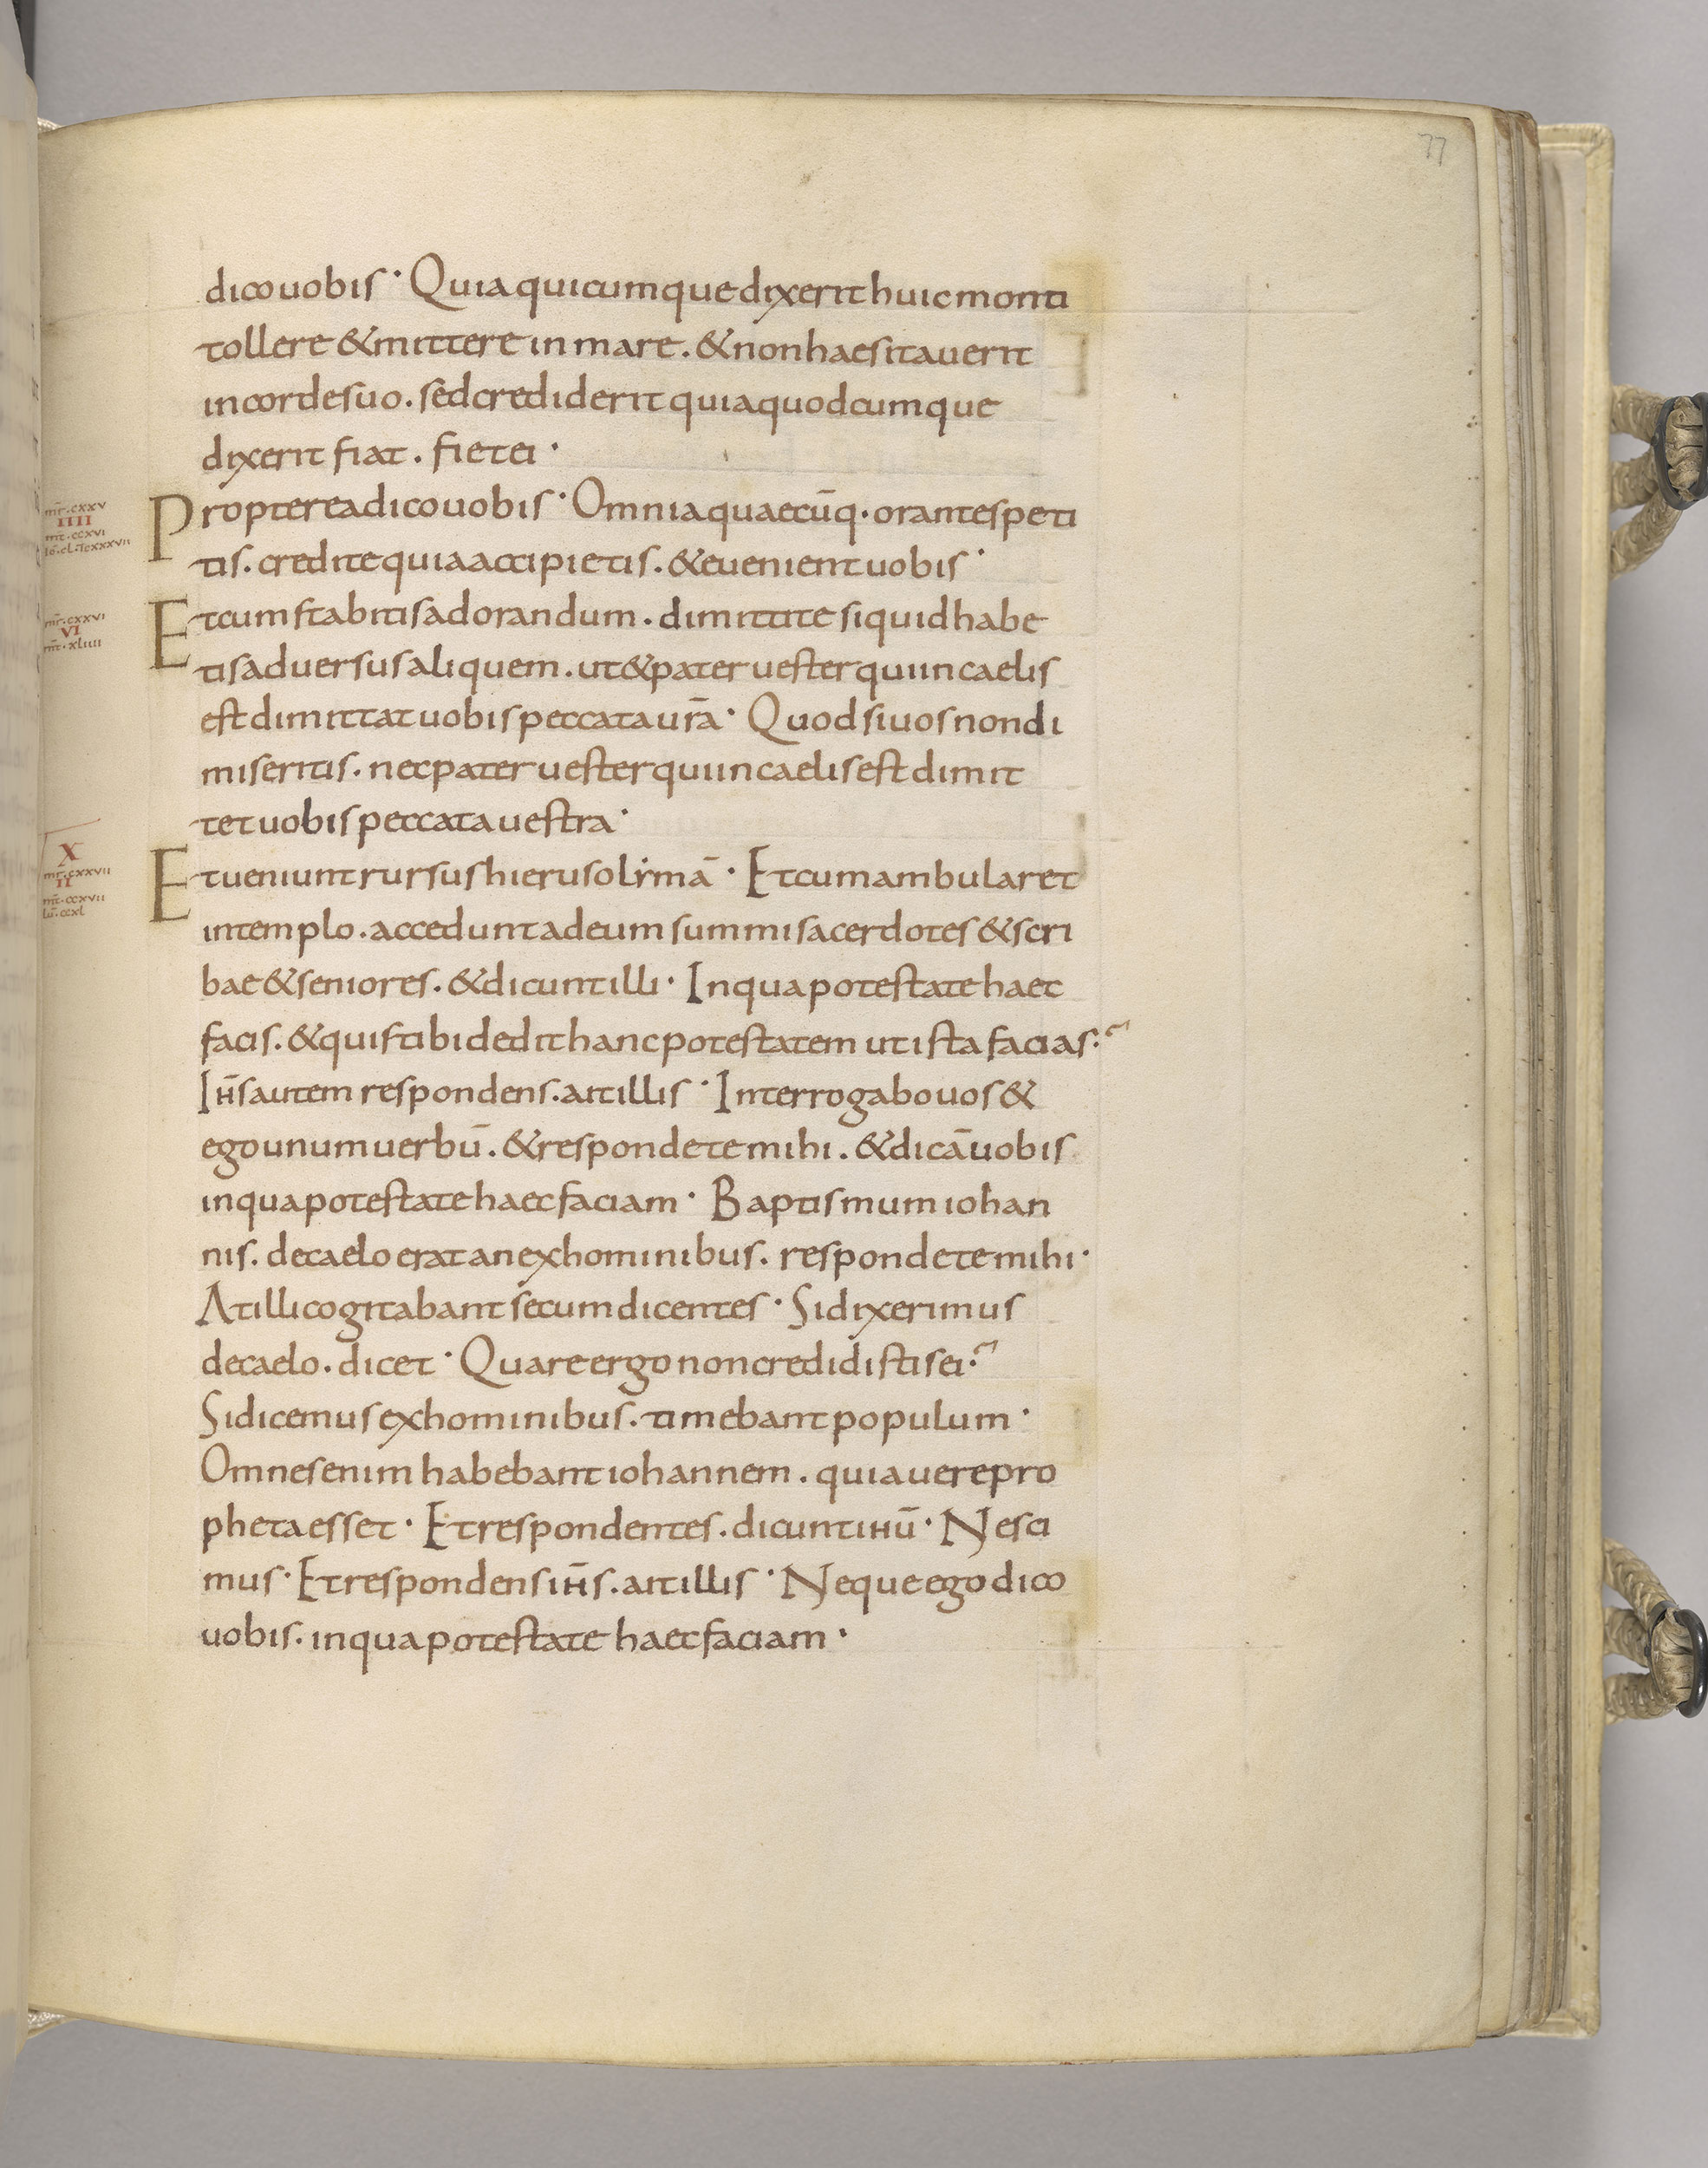 77
dico uobis · Quia quicumque dixerit huic monti
tollere & mittere in mare . & non haesitauerit
in corde suo . sed crediderit quia quodcumque
dixerit fiat . fiet ei ·
mr̄ . cxxv
IIII
mt̄ . ccxvi
Propterea dico uobis · Omnia quaecūq · orantes peti
tis . credite quia accipietis . & euenient uobis ·
mr̄ . cxxvi
VI
mt̄ . xliiii
Et cum stabitis ad orandum . dimittite si quid habe
tis aduersus aliquem . ut & pater uester qui in caelis
est dimittat uobis peccata ur̄a · Quod si uos non di
miseritis . nec pater uester qui in caelis est dimit
tet uobis peccata uestra ·
X
mr̄ . cxxvii
II
mt̄ . ccxvii
lū . ccxl
Et ueniunt rursus hierusolẏmā · Et cum ambularet
in templo . accedunt ad eum summi sacerdotes & scri
bae & seniores . & dicunt illi · In qua potestate haec
facis . & quis tibi dedit hanc potestatem ut ista facias ?
Ih̄s autem respondens . ait illis · Interrogabo uos &
ego unum uerbū . & respondete mihi . & dicā uobis
in qua potestate haec faciam · Baptismum iohan
nis . de caelo erat an ex hominibus . respondete mihi ·
At illi cogitabant secum dicentes · Si dixerimus
de caelo . dicet · Quare ergo non credidistis ei ?
Si dicemus ex hominibus . timebant populum ·
Omnes enim habebant iohannem . quia uere pro
pheta esset · Et respondentes . dicunt ihū · Nesci
mus · Et respondens ih̄s . ait illis · Neque ego dico
uobis . in qua potestate haec faciam ·